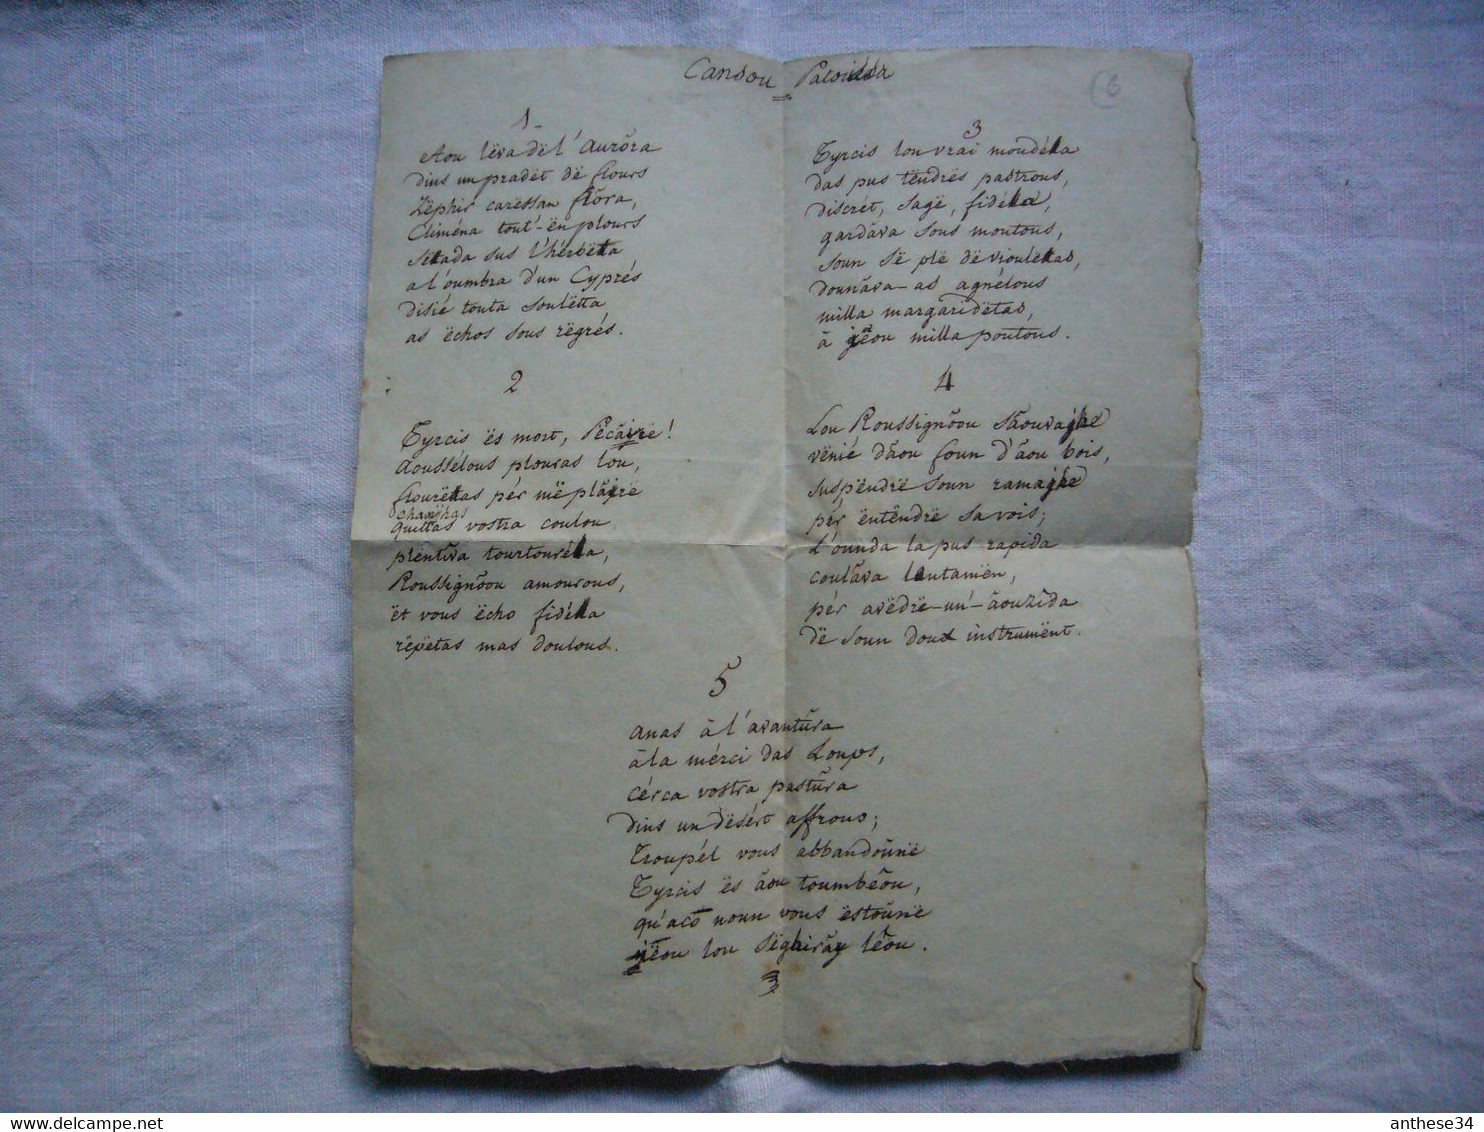 Cansou Patouésa
(6
1
Aou lëva dël'Aurŏra
dins un pradët dë flours
Zëphir caressan flŏra,
Cliména tout'-ën plours
sëtada sus l'hérbëta
a l'oumbra d'un Cyprés
disié touta soulëtta
as ëchos sous rëgrés.
2
Tyrcis ës mort, Pécăirë!
aoussélous plouras lou,
flourëtas pér më plăirë
chanjhas
quittas vostra coulou
plëntiva tourtouréla,
Roussignŏou amourous,
ët vous ëcho fidéla
rëpëtas mas doulous.
3
Tyrcis lou vrai moudéla
das pus tëndrës pastrous,
discrét, sagë, fidéla,
gardăva sous moutous,
soun së plë dë vioulëtas,
dounăva-as agnélous
milla margaridëtas,
à iëou milla poutous.
4
Lou Roussignŏou săouvajhë
vënié dăou foun d'ăou bois,
suspëndrë soun ramajhë
pér ëntëndrë sa vois;
L'ounda la pus rapida
coulăva lëntamën,
pér avëdrë-un'-ăouzida
dë soun doux instrumënt.
5
anas ă l'avantŭra
ă la mérci das Loups,
cérca vostra pastŭra
dins un dësért affrous;
Troupél vous abbandoŭnë
Tyrcis ës ăou toumbĕou,
qu'aco noun vous ëstoŭnë
iëou lou sëghirăy lĕou.
anthese34